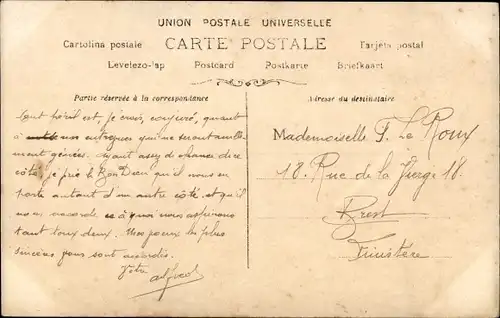 UNION POSTALE UNIVERSELLE
Cartolina postale CARTE POSTALE Tarjeta postal
Levelezo-lap Postcard Postkarte Briefkaart
Partie réservée à la correspondance
Tout péril est, je crois, conjuré, quant
à nos entrevues qui ne seront nulle-
ment gênées. Ayant assez de chance de ce
côté, je prie le Bon Dieu qu'il nous en
porte autant d'un autre côté et qu'il
nous accorde ce à quoi nous aspirons
tant tous deux. Mes vœux les plus
sincères vous sont accordés.
Votre
Alfred
Adresse du destinataire
Mademoiselle F. Le Roux
18. Rue de la Vierge 18.
Brest
Finistère